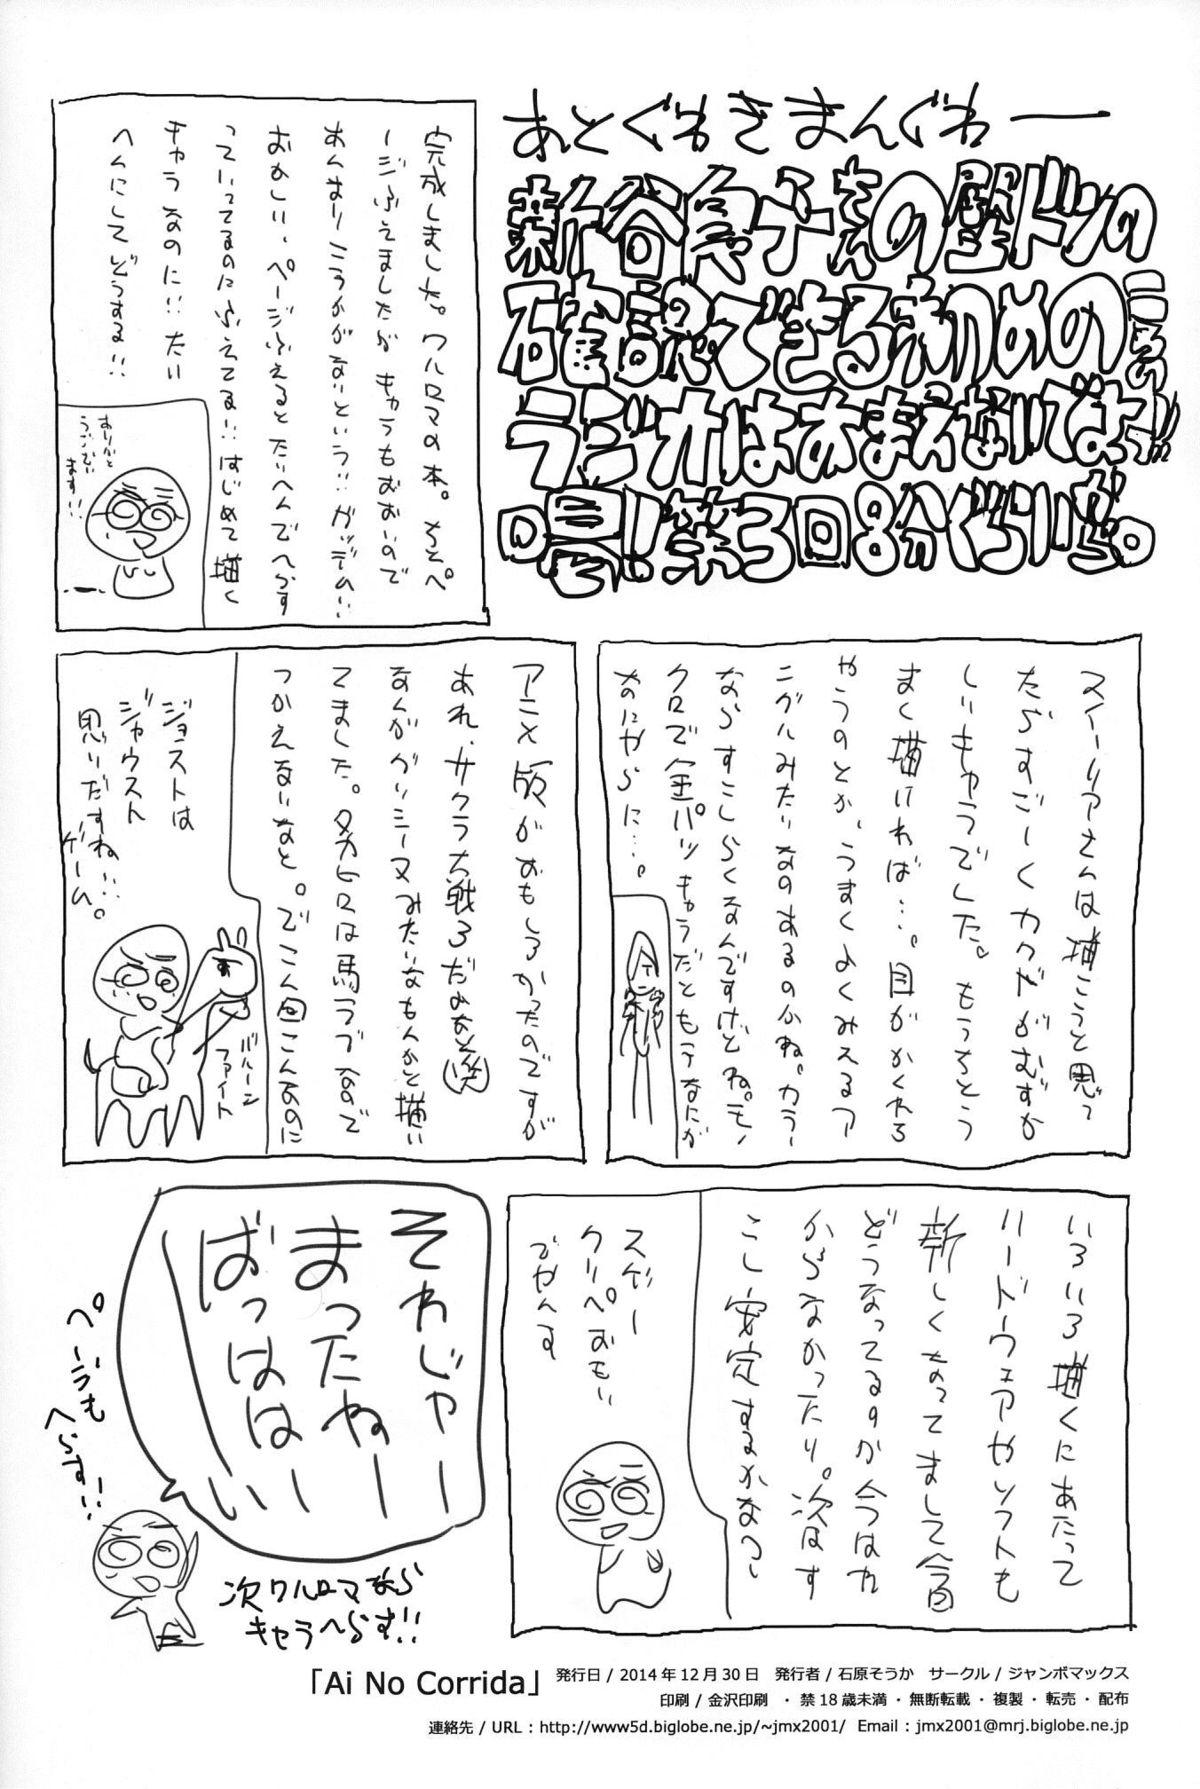 あとぐわきまんぐわー
新谷良子さんの壁ドンの
確認できる初めの
ラジオはおまえないでよっ!!
第3回8分ぐらい
完成しました。ワルロマの本。ちとペ
ージふえましたが キャラもおおいので
あんまりこうかがないという!! ガッデム!!
おかしい、ページふえるとたいへんでへらす
っていってるのにふえてる!! はじめて描く
キャラなのに!! たい
へんにしてどうする!!
ありがと
うござい
ます!!
スイーリアさんは描こうと思っ
たらすごーくカクヤがむずか
しいキャラでした。もうちとう
まく描ければ…。目がかくれち
ゃうのとか、うまくよくみえるア
ングルみたいなのあるのかね。カラー
ならすこしらくなんですけどね。モノ
クロで金パツキャラだともうなにが
なにやらに…。
アニメ版がおもしろかったのですが
あれ、サクラ大戦3だよなと(笑)
なんかグリシーヌみたいなもんかと描い
てました。タカヒロは馬ラブなので
つかえないなと。でこん回こんなのに
ジョストは
ジャウスト
思いだすね…
ゲーム。
バルーン
ファイト
いろいろ描くにあたって
ハードウェアやソフトも
新しくなってまして今回
どうなってるのか今はわ
からなかったり。次はす
こし安定するかなっ
スゲー
クリペおもい
でやんす
それじゃー
まったねー
ばっははーい
ページも
へらす!!
次ワルロマなら
キャラへらす!!
「Ai No Corrida」 発行日 / 2014 年 12 月 30 日　発行者 / 石原そうか　サークル / ジャンボマックス
印刷 / 金沢印刷　・ 禁 18 歳未満 ・ 無断転載 ・ 複製 ・ 転売 ・ 配布
連絡先 / URL : http://www5d.biglobe.ne.jp/~jmx2001/　Email : jmx2001@mrj.biglobe.ne.jp